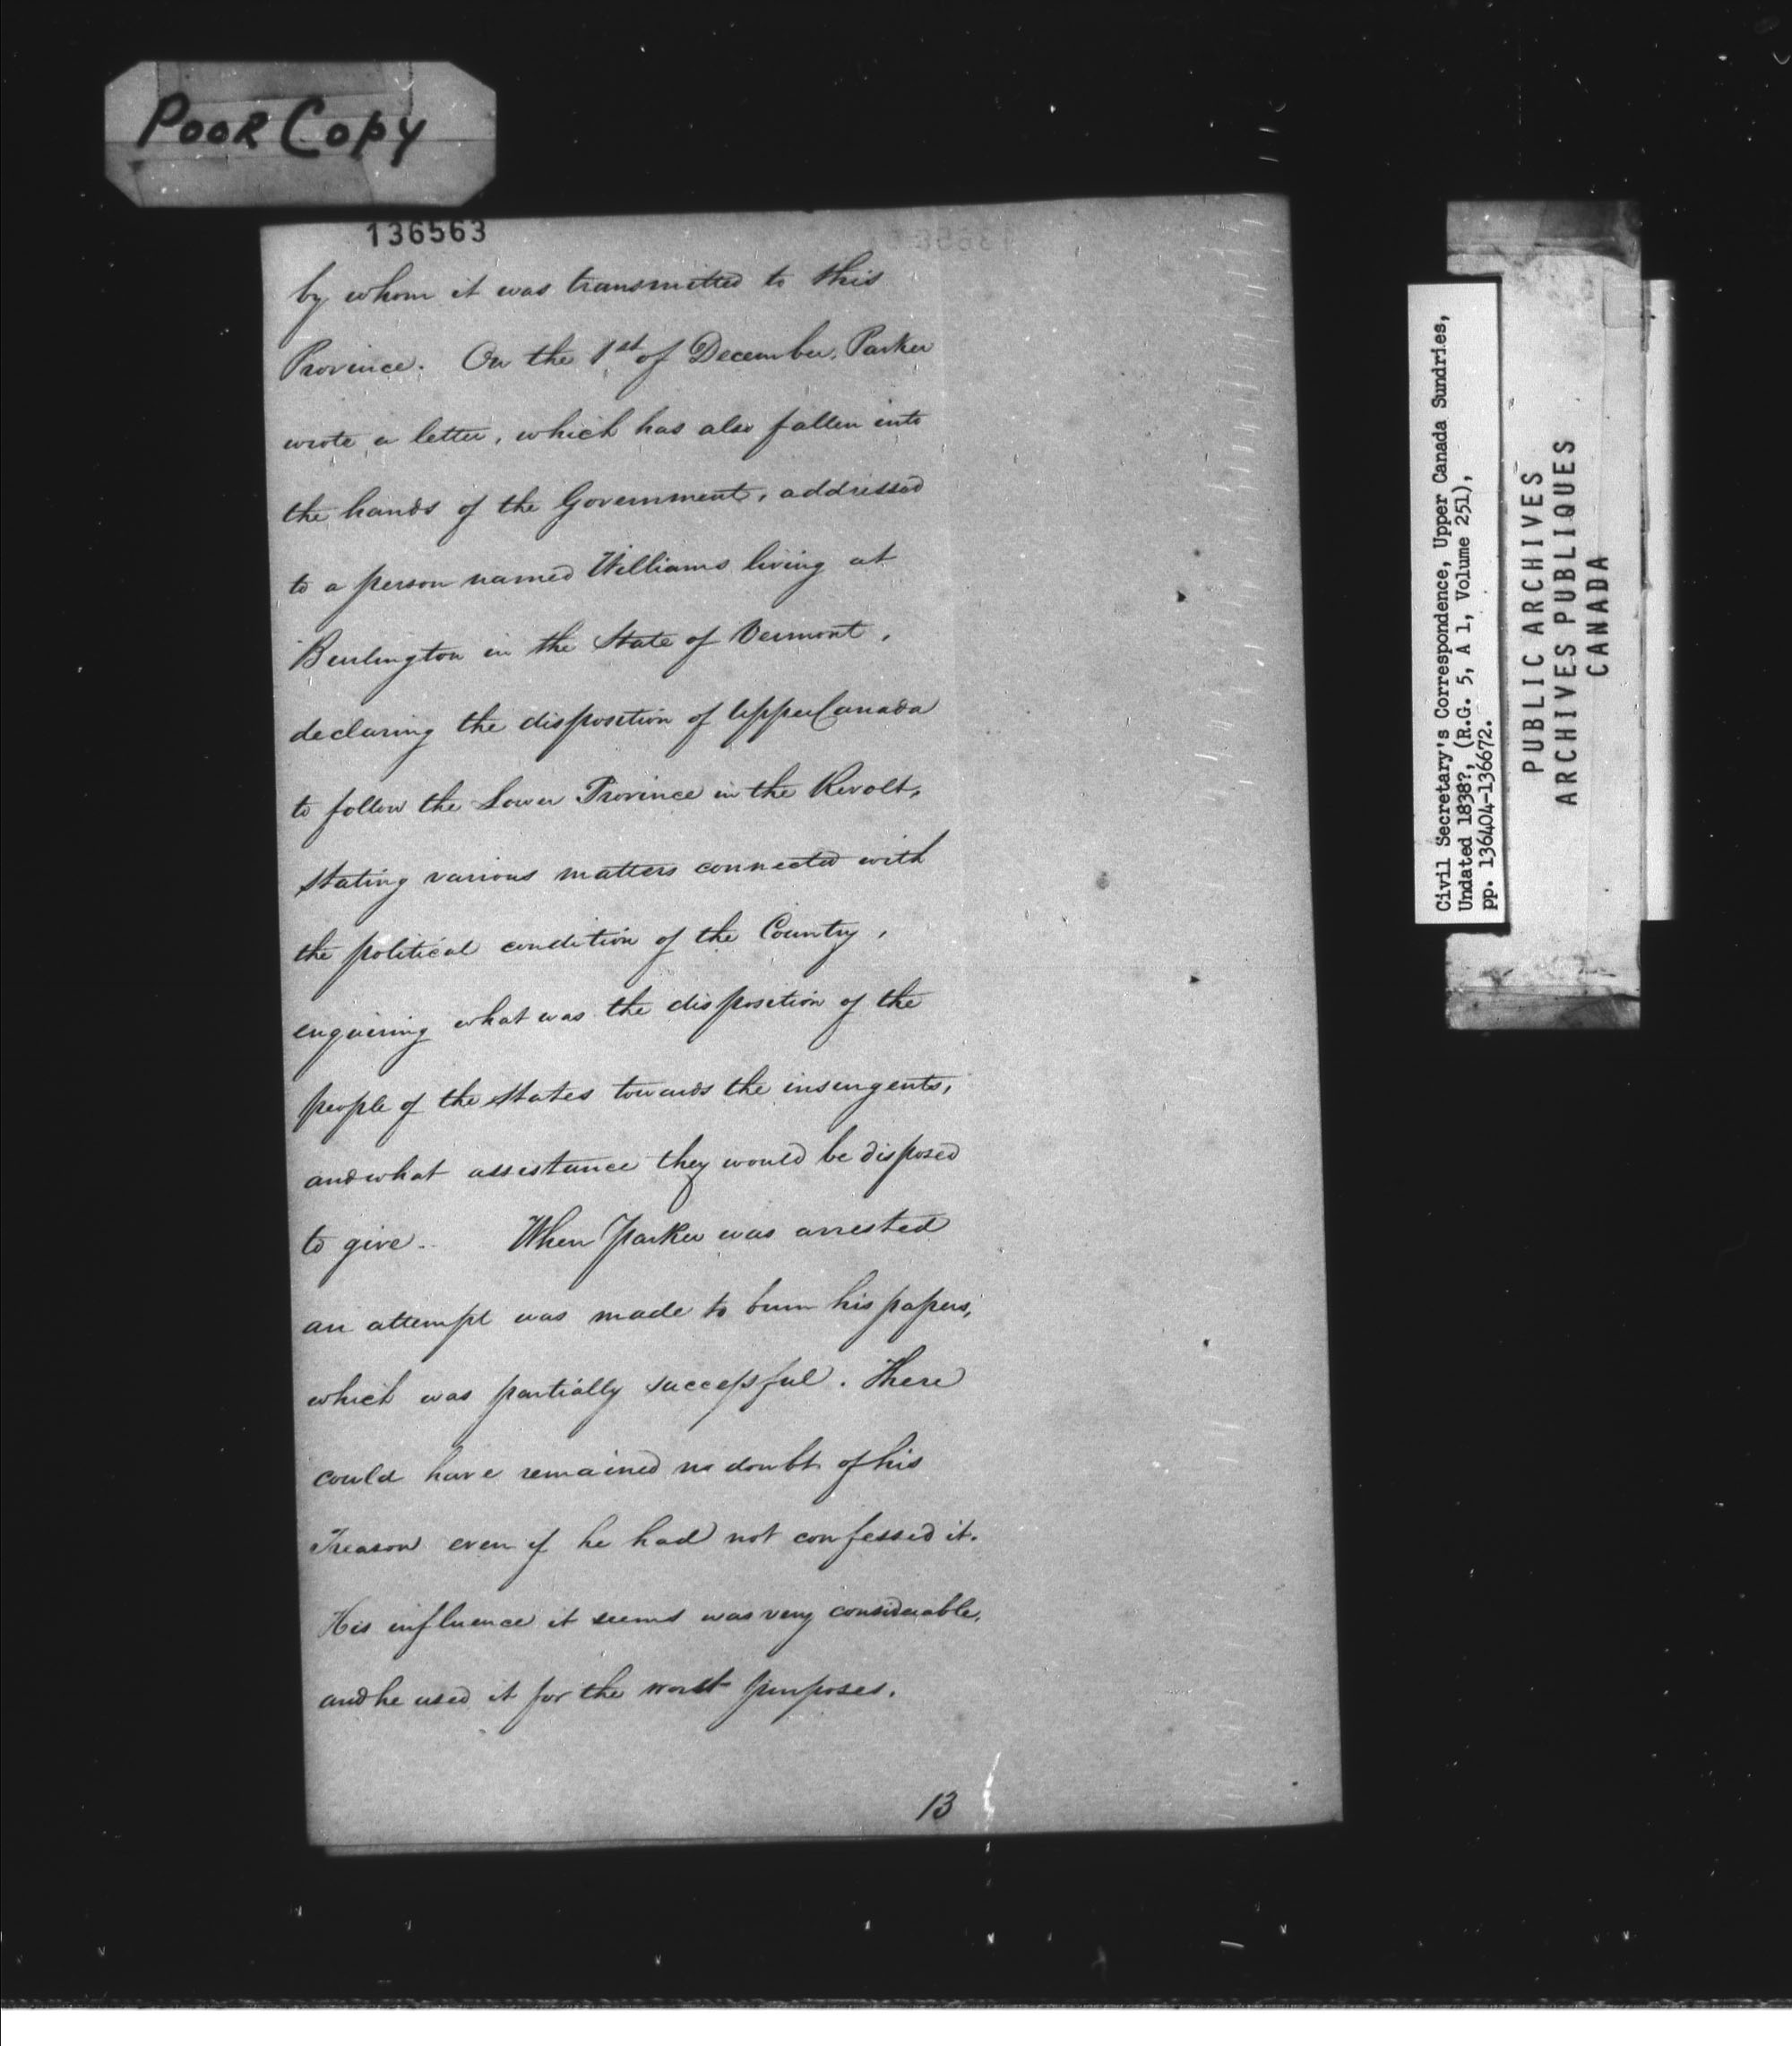 Poor Copy
136563
by whom it was transmitted to this
Province. On the 1st of December, Parker
wrote a letter, which has also fallen into
the hands of the Government, addressed
to a person named Williams living at
Burlington in the State of Vermont,
declaring the disposition of Upper Canada
to follow the Lower Province in the Revolt,
stating various matters connected with
the political condition of the Country,
enquiring what was the disposition of the
people of the States towards the insurgents,
and what assistance they would be disposed
to give. When Parker was arrested
an attempt was made to burn his papers,
which was partially successful. There
could have remained no doubt of his
Treason even if he had not confessed it.
His influence it seems was very considerable,
and he used it for the worst purposes.
13
Civil Secretary's Correspondence, Upper Canada Sundries,
Undated 1838?, (R.G. 5, A 1, Volume 251),
pp. 136404-136672.
PUBLIC ARCHIVES
ARCHIVES PUBLIQUES
CANADA